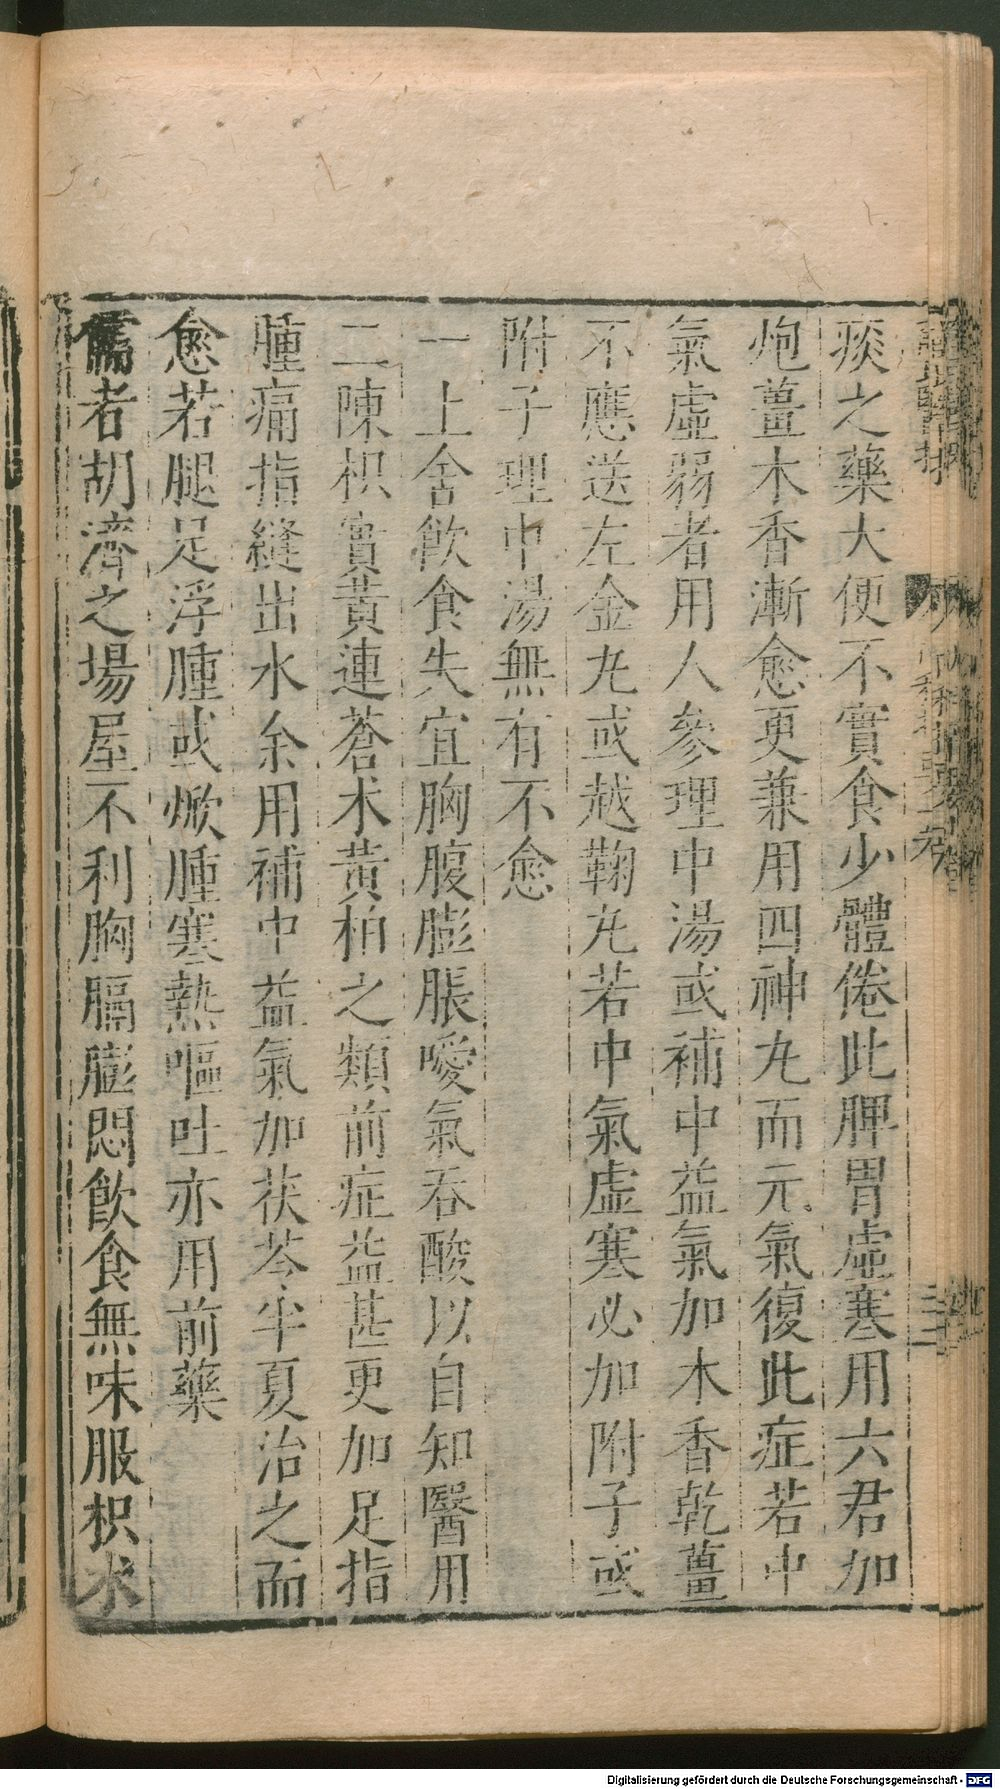 痰之藥大便不實食少體倦此脾胃虛寒用六君加
炮薑木香漸愈更兼用四神丸而元氣復此症若中
氣虛弱者用人參理中湯或補中益氣加木香乾薑
不應送左金丸或越鞠丸若中氣虛寒必加附子或
附子理中湯無有不愈
一上舍飲食失宜胸腹膨脹噯氣吞酸以自知醫用
二陳枳實黃連蒼朮黃柏之類前症益甚更加足指
腫痛指縫出水余用補中益氣加茯苓半夏治之而
愈若腿足浮腫或焮腫寒熱嘔吐亦用前藥
儒者胡濟之場屋不利胸膈膨悶飲食無味服枳朮
Digitalisierung gefördert durch die Deutsche Forschungsgemeinschaft - DFG